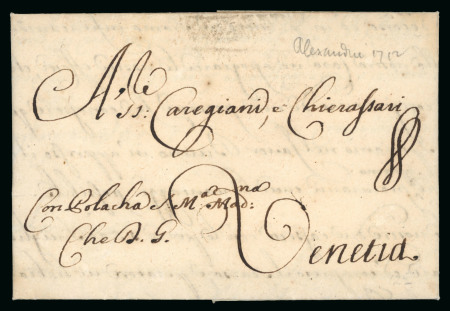 Alexandrie 1712
Alli
SS: Caregiani, e Chierassari
Con Polacha S. M.
Che D. G.
Venetia